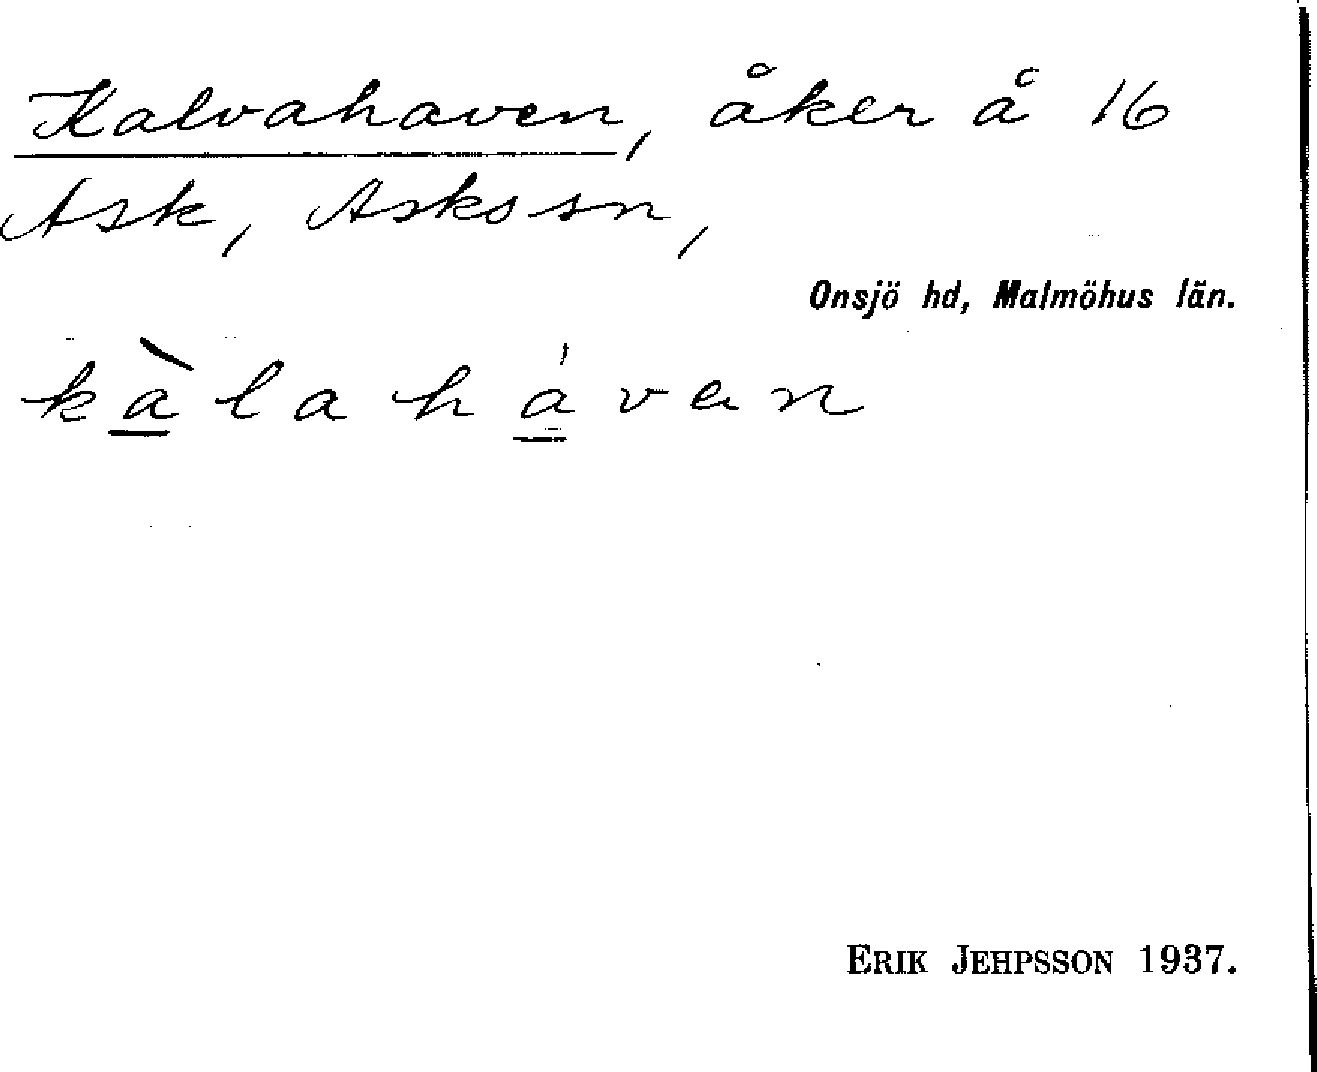 Kalvahaven, åker å 16
Ask, Asks sn,
Onsjö hd, Malmöhus län.
kàlaháven
ERIK JEHPSSON 1937.